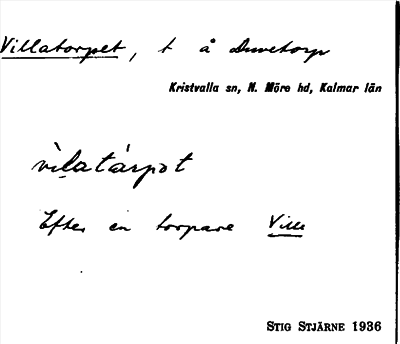 Villatorpet, t å Duvetorp
Kristvalla sn, N. Möre hd, Kalmar län
vìlatárpot
Efter en torpare Ville
STIG STJÄRNE 1936